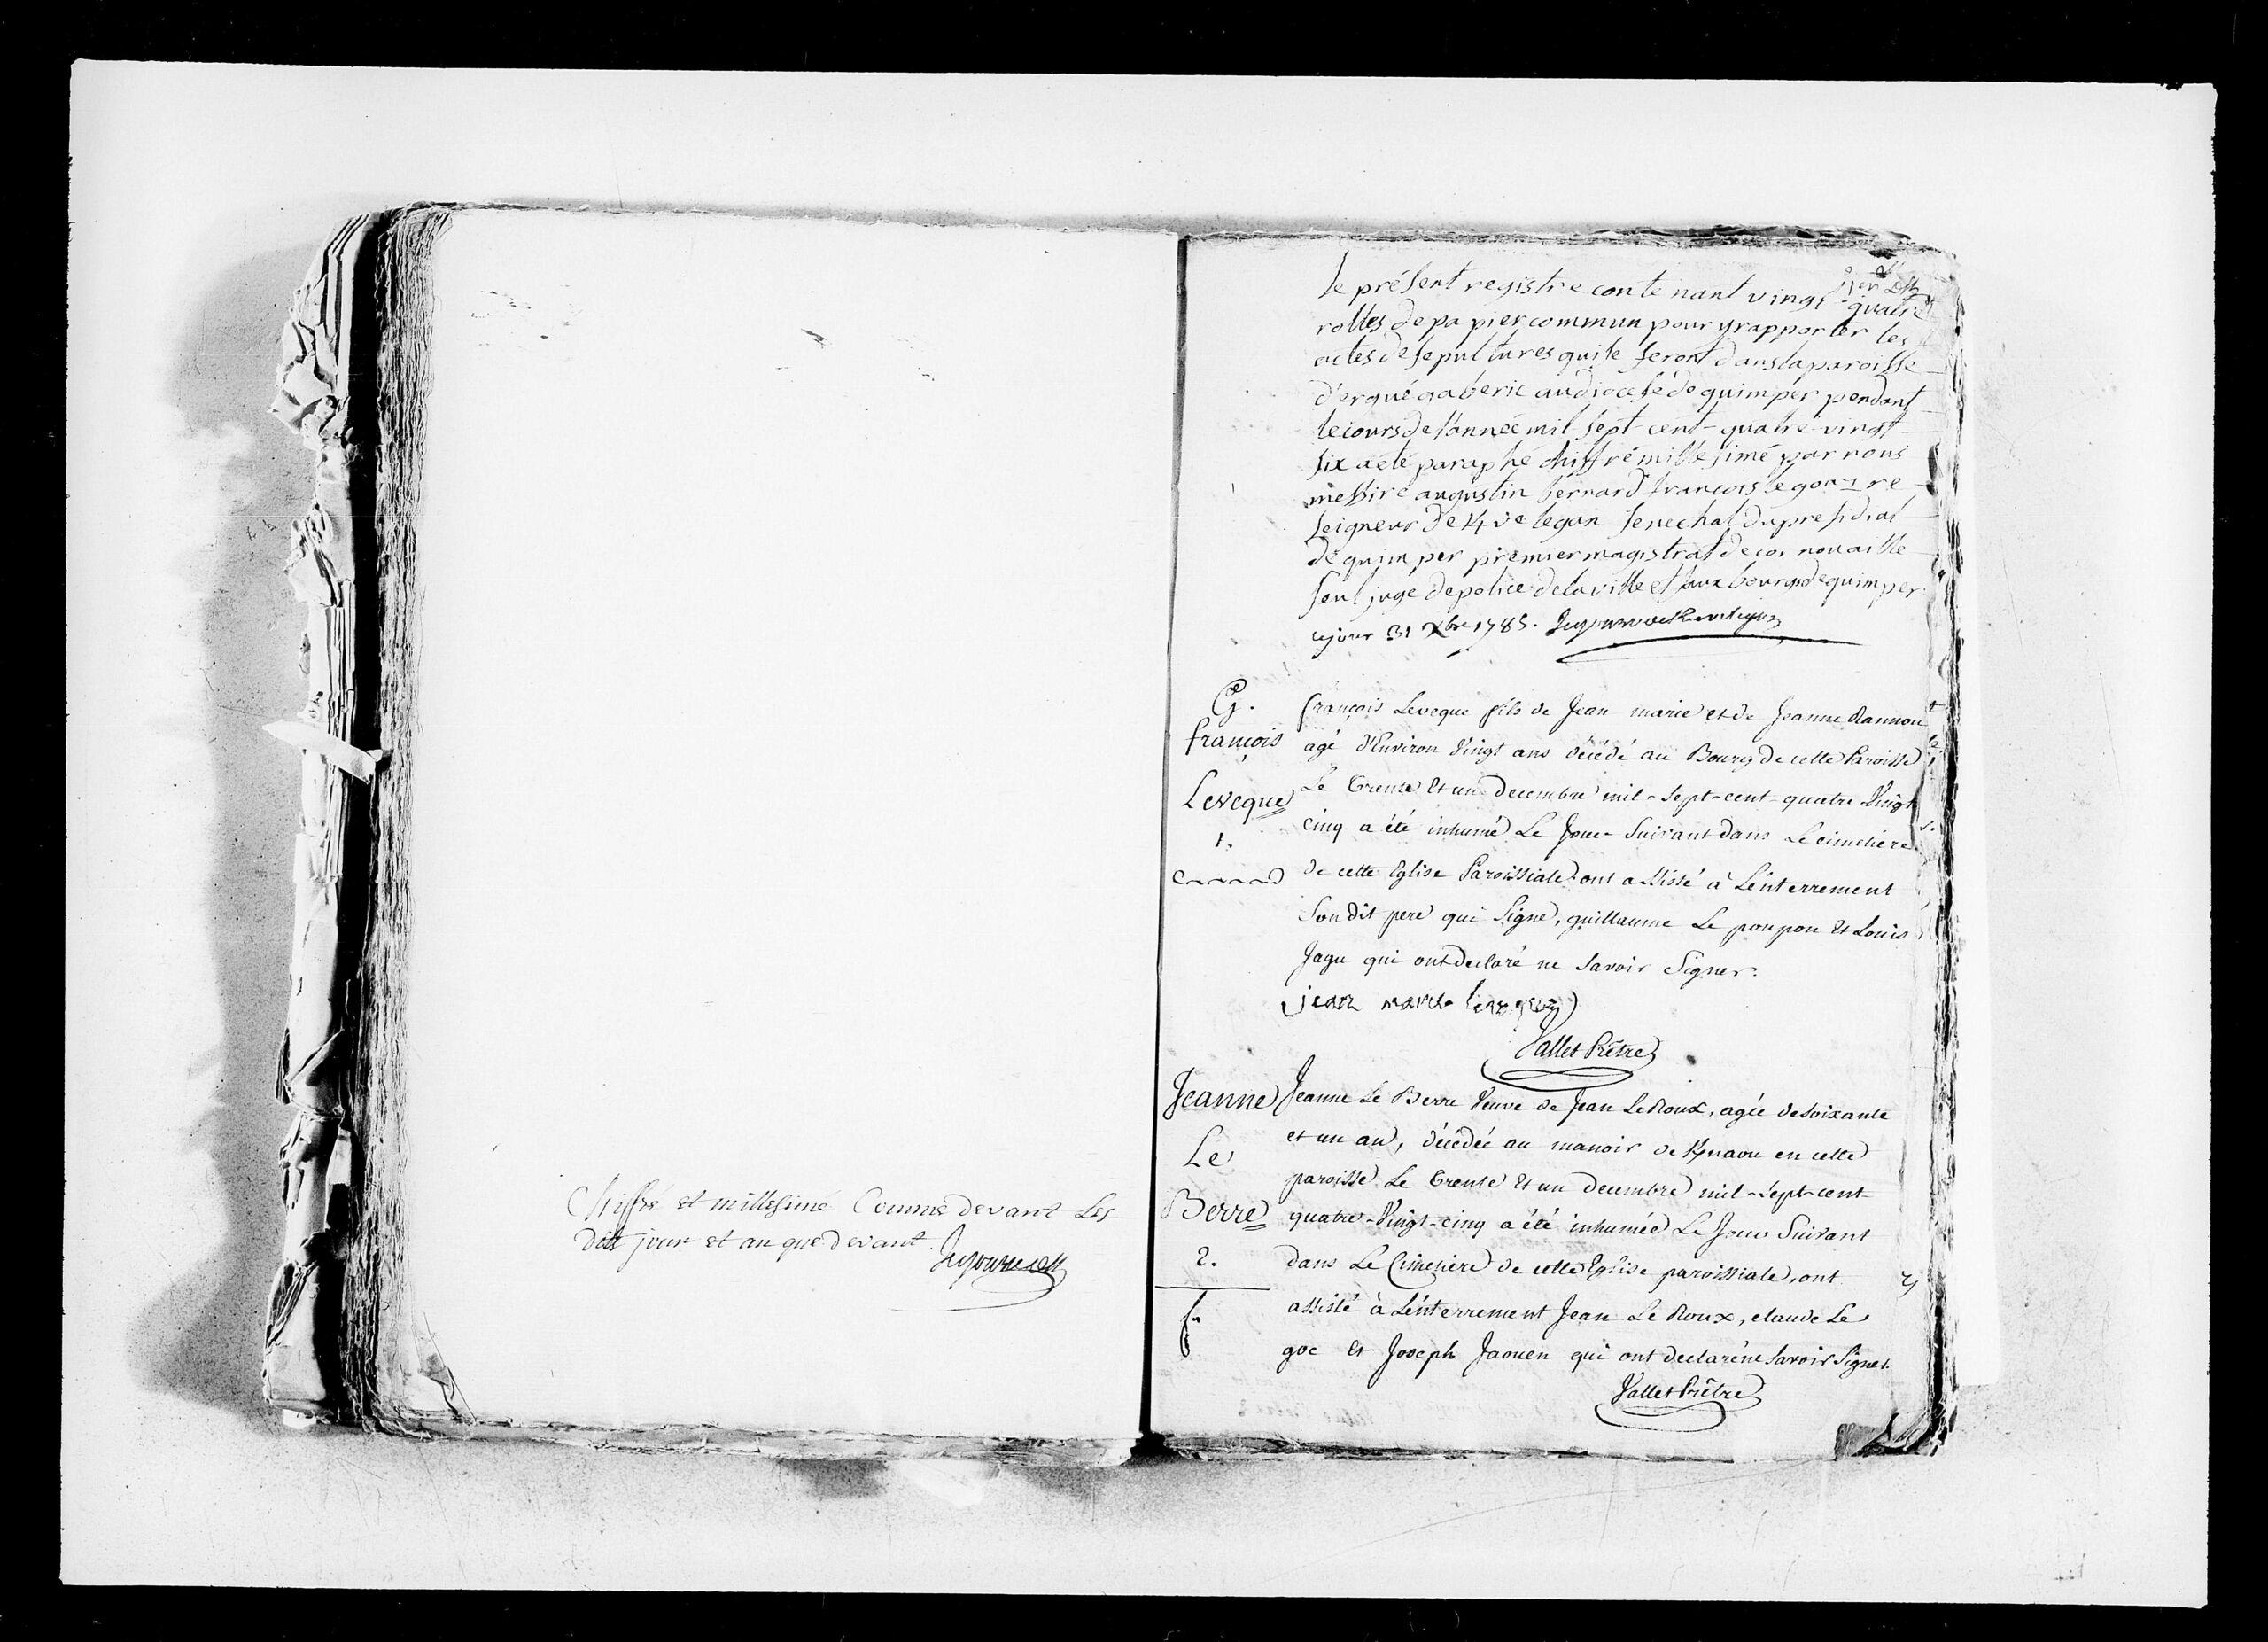 Chiffré et millesimé Comme devant Les
dits jour et an que devant.
le présent registre contenant vingt-quatre
rolles de papier commun pour y rapporter les
actes de sepultures qui se feront dans la paroisse
d'ergué gaberic au diocese de quimper pendant
le cours de l'année mil sept cent-quatre-vingt
six a été paraphé chiffré millesimé par nous
messire augustin bernard francois le goazre
seigneur de Kvelegan senechal du presidial
de quimper premier magistrat de cornouaille
seul juge de police de la ville et faux bourgs de quimper
ce jour 31 Xbre 1785.
G.
françois
Leveque
1.
françois Leveque fils de Jean marie et de Jeanne Rannou
agé d'Environ Vingt ans décédé au Bourg de cette Paroisse
Le Trente Et un decembre mil-sept-cent-quatre Vingt
cinq a été inhumé Le Jour Suivant dans Le cimetiere
de cette Eglise Paroissiale ont assisté à L'enterrement
Son dit pere qui Signe, guillaume Le poupon Et Louis
Jagu qui ont declaré ne savoir Signer.
jean marie leveque
Vallet Prêtre
Jeanne
Le
Berre
2.
Jeanne Le Berre Veuve de Jean Le Roux, agée de soixante
et un an, décédée au manoir de Knaou en cette
paroisse Le Trente Et un decembre mil-sept-cent-
quatre-Vingt-cinq a été inhumée Le Jour Suivant
dans Le Cimetiere de cette Eglise paroissiale, ont
assisté à L'enterrement Jean Le Roux, claude Le
goc Et Joseph Jaouen qui ont declaré ne savoir Signer.
Vallet Prêtre